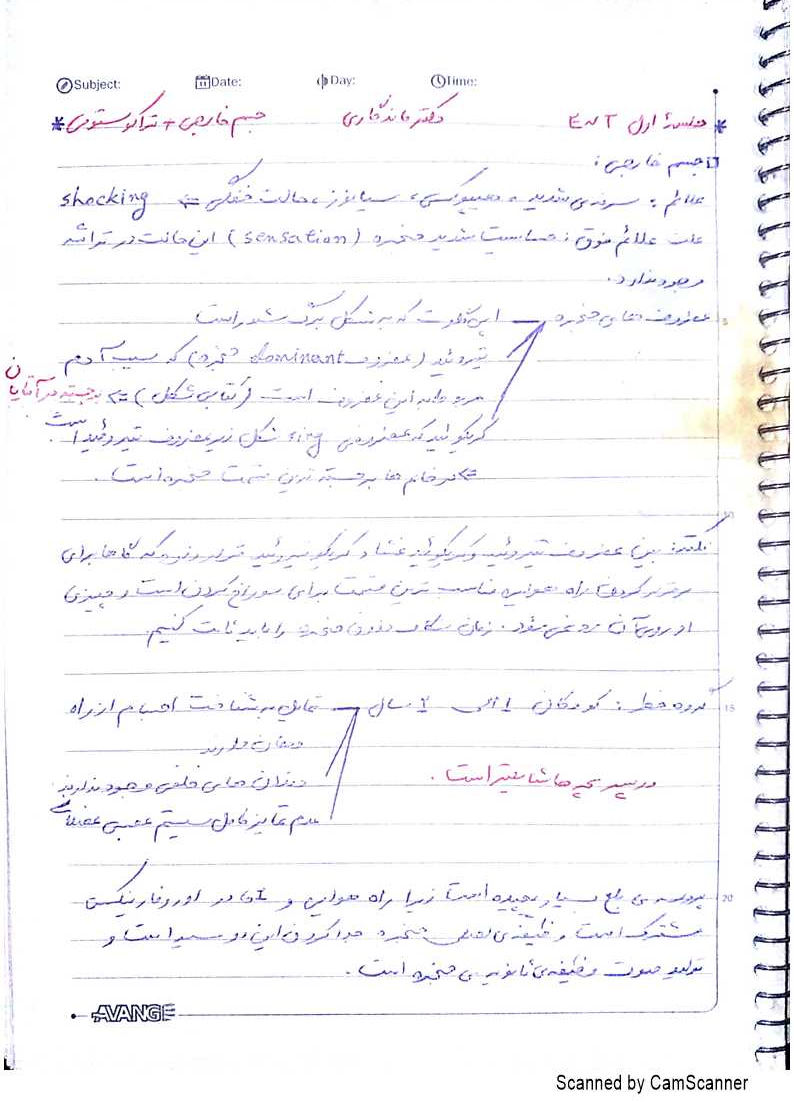 Subject: Date: Day: Time:
* جلسهٔ اول ENT دکتر ماندگاری جسم خارجی + تراکوستومی *
جسم خارجی:
علائم: سرفه‌ی شدید، هیپوکسی، سیانوز، حالت خفگی ⇐ shocking
علت علائم فوق: حساسیت شدید حنجره (sensation) این حالت در تراشه
وجود ندارد.
غضروف های حنجره — اپی‌گلوت که به شکل برگ است
تیروئید (غضروف dominant حنجره) که سیب آدم
مربوط به این غضروف است (کتابی شکل) ⇐ برجسته در آقایان
کریکوئید که غضروفی ring شکل زیر غضروف تیروئید است
⇐ در خانم ها برجسته ترین قسمت حنجره است.
نکته: بین غضروف تیروئید و کریکوئید غشاء کریکوتیروئید قرار دارد که گاها برای
برقرار کردن راه هوایی مناسب ترین قسمت برای سوراخ کردن است و چیزی
از روی آن رد نمی شود. زمان شکاف دادن حنجره را باید ثابت کنیم.
گروه خطر: کودکان ۱ الی ۳ سال — تمایل به شناخت اجسام از راه
دهان دارند
دندان های خلفی وجود ندارند
عدم تمایز کامل سیستم عصبی عضلانی
در پسر بچه ها شایعتر است.
پروسه ی بلع بسیار پیچیده است زیرا راه هوایی و GI در اوروفارینکس
مشترک است و وظیفه‌ی اصلی حنجره جدا کردن این دو مسیر است و
تولید صوت وظیفه‌ی ثانویه ی حنجره است.
AVANGE
Scanned by CamScanner